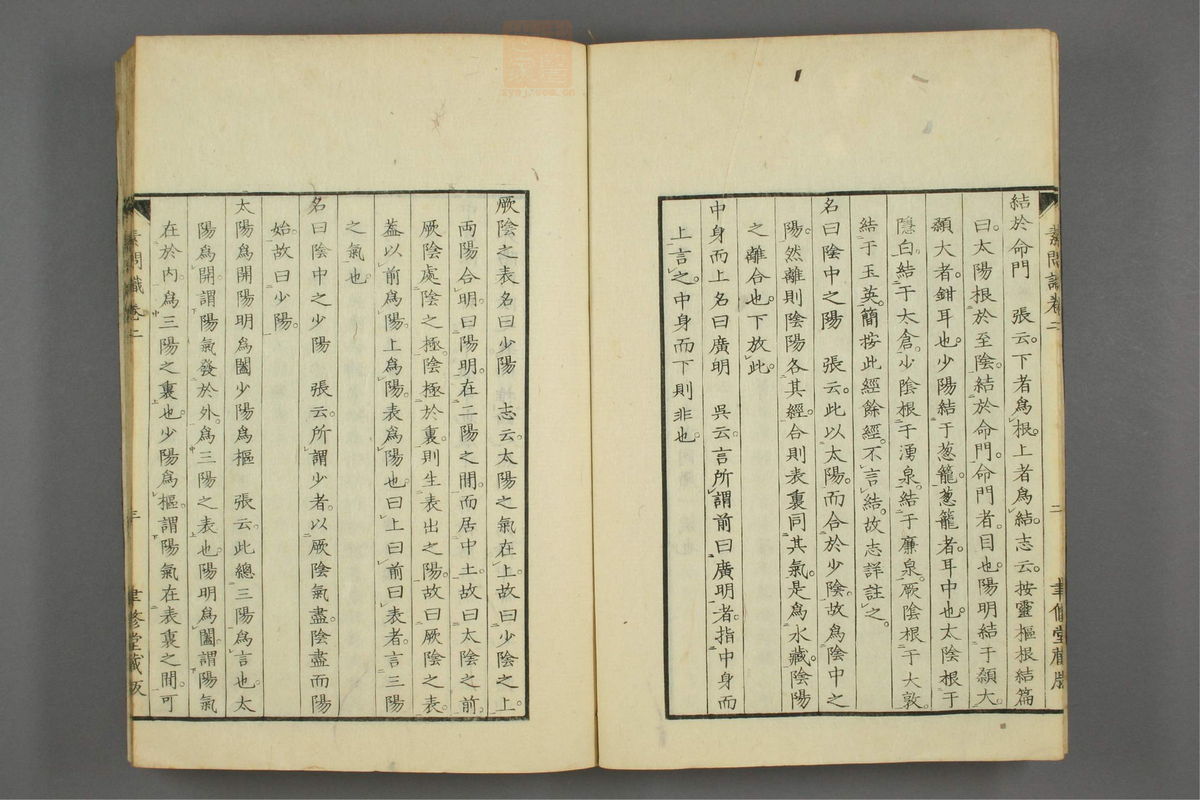 結於命門　張云。下者爲根。上者爲結。志云。按靈樞根結篇
曰。太陽根於至陰。結於命門。命門者。目也。陽明結于顙大。
顙大者。鉗耳也。少陽結于葱籠。葱籠者。耳中也。太陰根于
隱白。結于太倉。少陰根于湧泉。結于廉泉。厥陰根于大敦。
結于玉英。簡按此經餘經。不言結。故志詳註之。
名曰陰中之陽　張云。此以太陽。而合於少陰。故爲陰中之
陽。然離則陰陽各其經。合則表裏同其氣。是爲水藏。陰陽
之離合也。下放此。
中身而上名曰廣明　吳云。言所謂前曰廣明者。指中身而
上言之。中身而下則非也。
素問識卷二
二
聿修堂藏版
厥陰之表名曰少陽　志云。太陽之氣在上。故曰少陰之上。
兩陽合明。曰陽明。在二陽之間。而居中土。故曰太陰之前。
厥陰處陰之極。陰極於裏。則生表出之陽。故曰厥陰之表。
蓋以前爲陽。上爲陽。表爲陽也。曰上曰前曰表者。言三陽
之氣也。
名曰陰中之少陽　張云。所謂少者。以厥陰氣盡。陰盡而陽
始。故曰少陽。
太陽爲開陽明爲闔少陽爲樞　張云。此總三陽爲言也。太
陽爲開。謂陽氣發於外。爲三陽之表也。陽明爲闔。謂陽氣
在於內。爲三陽之裏也。少陽爲樞。謂陽氣在表裏之間。可
素問識卷二
三
聿修堂藏版